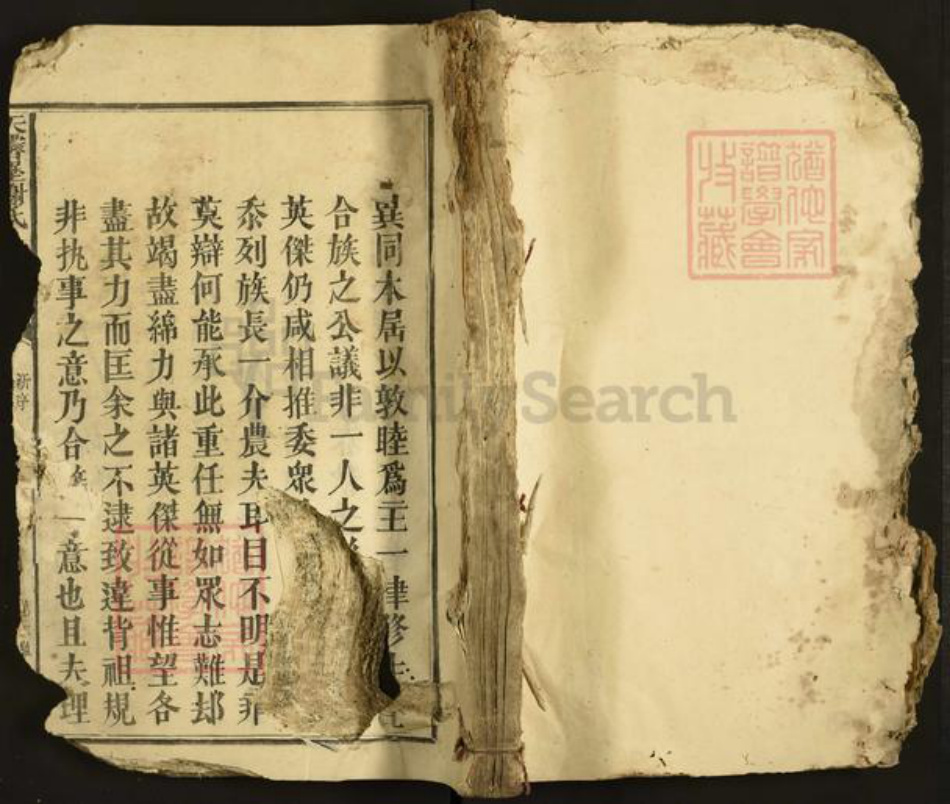 猶他家
譜學會
收藏
異同本居以敦睦爲主一律修
合族之公議非一人之
英傑仍咸相推委眾
忝列族長一介農夫耳目不明是非
莫辯何能承此重任無如眾志難却
故竭盡綿力與諸英傑從事惟望各
盡其力而匡余之不逮致違背祖規
非執事之意乃合族一意也且夫理
謝氏
新序
FamilySearch